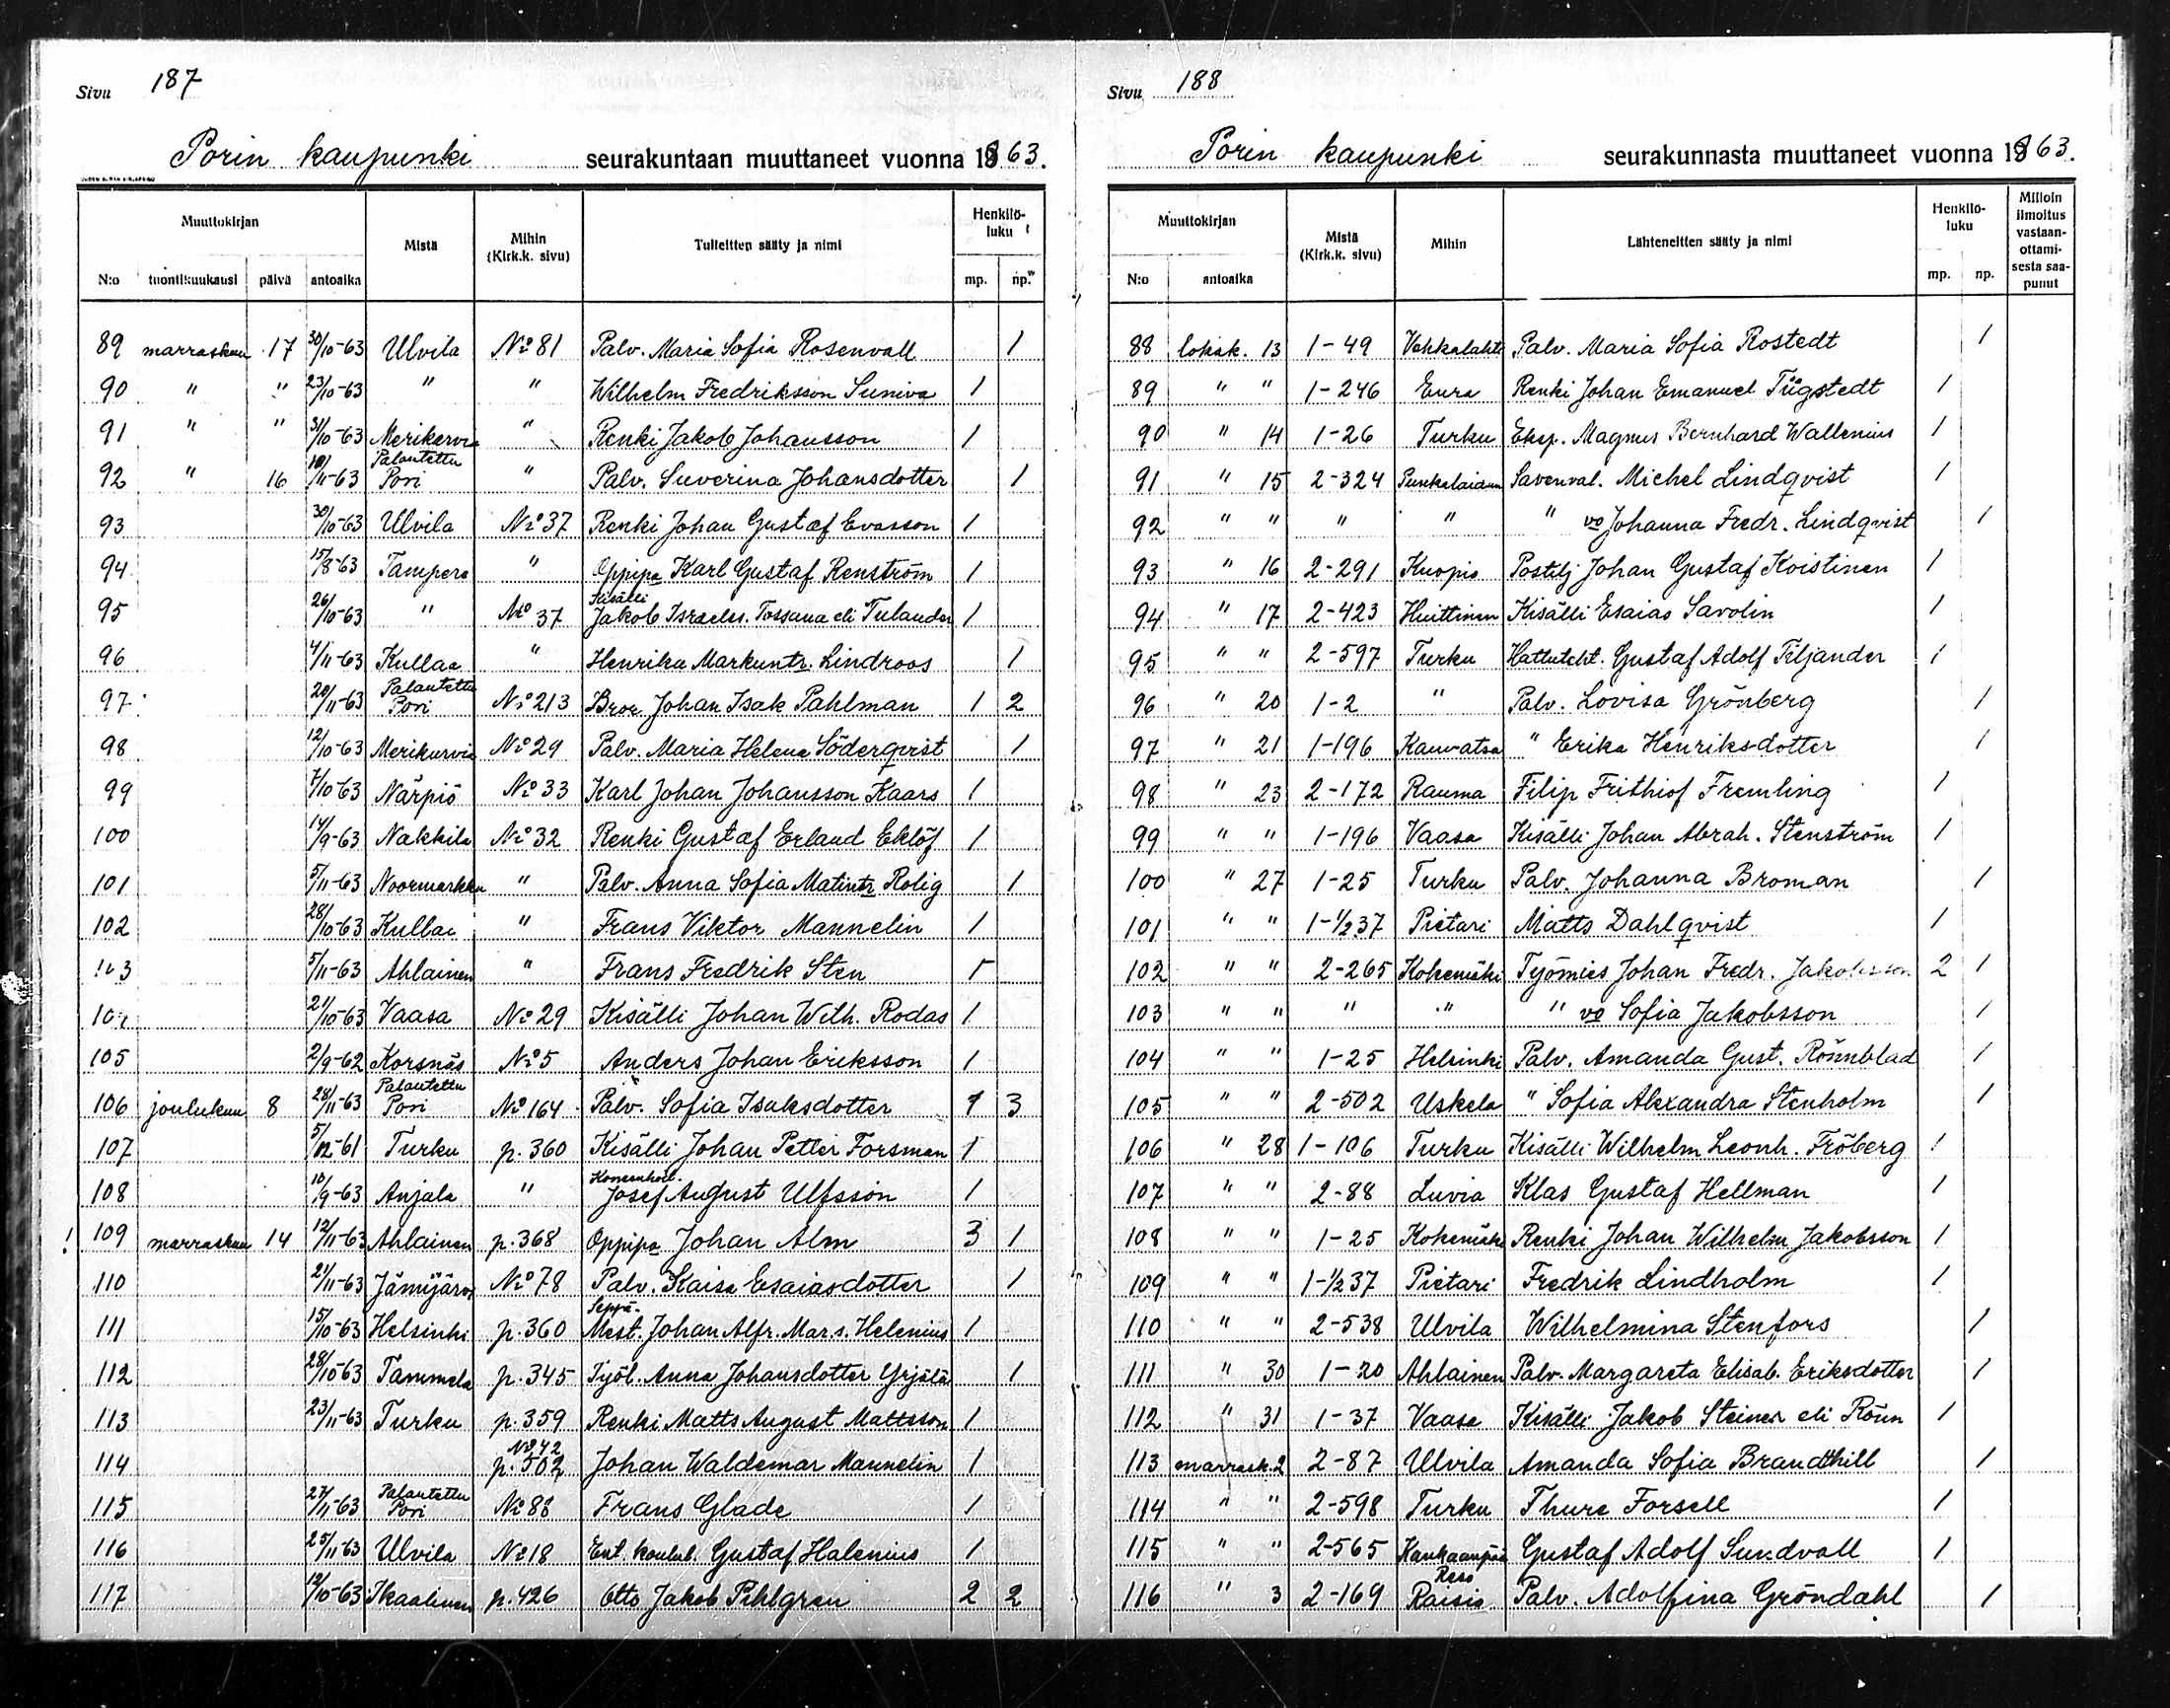 Sivu 187
Porin kaupunki seurakuntaan muuttaneet vuonna 1863.
Muuttokirjan Mistä Mihin (Kirk.k. sivu) Tulleitten sääty ja nimi Henkilöluku
N:o tuontikuukausi päivä antoaika mp. np.
89 marraskuu 17 30/10-63 Ulvila No 81 Palv. Maria Sofia Rosenvall 1
90 " " 23/10-63 " " Wilhelm Fredriksson Suniva 1
91 " " 31/10-63 Merikarvia " Renki Jakob Johansson 1
92 " 16 10/11-63 Palautettu Pori " Palv. Suverina Johansdotter 1
93 30/10-63 Ulvila No 37 Renki Johan Gustaf Evasson 1
94 15/8-63 Tampere " Oppipa Karl Gustaf Renström 1
95 26/10-63 " No 37 Kisälli Jakob Israels. Tossana eli Tulander 1
96 4/11-63 Kullaa " Henrika Markuntr. Lindroos 1
97 20/11-63 Palautettu Pori No 213 Bror Johan Isak Pahlman 1 2
98 12/10-63 Merikarvia No 29 Palv. Maria Helena Söderqvist 1
99 7/10-63 Närpiö No 33 Karl Johan Johansson Kaars 1
100 14/9-63 Nakkila No 32 Renki Gustaf Erland Eklöf 1
101 5/11-63 Noormarkku " Palv. Anna Sofia Matintr Rolig 1
102 28/10-63 Kullaa " Frans Viktor Mannelin 1
103 5/11-63 Ahlainen " Frans Fredrik Sten 1
104 21/10-63 Vaasa No 29 Kisälli Johan Wilh. Rodas 1
105 2/9-62 Korsnäs No 5 Anders Johan Eriksson 1
106 joulukuu 8 28/11-63 Palautettu Pori No 164 Palv. Sofia Isaksdotter 1 3
107 5/12-61 Turku p. 360 Kisälli Johan Petter Forsman 1
108 10/9-63 Anjala " Josef August Ulfsson 1
! 109 marraskuu 14 12/11-63 Ahlainen p. 368 Oppipa Johan Alm 3 1
110 21/11-63 Jämijärvi No 78 Palv. Kaisa Esaiasdotter 1
111 15/10-63 Helsinki p. 360 Seppä-Mest. Johan Alfr. Mar.s. Helenius 1
112 28/10-63 Tammela p. 345 Työl. Anna Johansdotter Yrjälä 1
113 23/11-63 Turku p. 359 Renki Matts August Mattsson 1
114 No 42 p. 502 Johan Waldemar Mannelin 1
115 27/11-63 Palautettu Pori No 88 Frans Glade 1
116 25/11-63 Ulvila No 18 Ent. koulul. Gustaf Halenius 1
117 12/10-63 Ikaalinen p. 426 Otto Jakob Pihlgren 2 2
Sivu 188
Porin kaupunki seurakunnasta muuttaneet vuonna 1863.
Muuttokirjan Mistä (Kirk.k. sivu) Mihin Lähteneitten sääty ja nimi Henkilöluku Milloin ilmoitus vastaanottamisesta saapunut
N:o antoaika mp. np.
88 lokak. 13 1-49 Vehkalahti Palv. Maria Sofia Rostedt 1
89 " " 1-246 Eura Renki Johan Emanuel Tügstedt 1
90 " 14 1-26 Turku Eksp. Magnus Bernhard Wallenius 1
91 " 15 2-324 Punkalaidun Savenval. Michel Lindqvist 1
92 " " " " " vo Johanna Fredr. Lindqvist 1
93 " 16 2-291 Kuopio Postilj Johan Gustaf Koistinen 1
94 " 17 2-423 Huittinen Kisälli Esaias Savolin 1
95 " " 2-597 Turku Hattuteht. Gustaf Adolf Tiljander 1
96 " 20 1-2 " Palv. Lovisa Grönberg 1
97 " 21 1-196 Kauvatsa " Erika Henriksdotter 1
98 " 23 2-172 Rauma Filip Frithiof Fremling 1
99 " " 1-196 Vaasa Kisälli Johan Abrah. Stenström 1
100 " 27 1-25 Turku Palv. Johanna Broman 1
101 " " 1-1/2 37 Pietari Matts Dahlqvist 1
102 " " 2-265 Kokemäki Työmies Johan Fredr. Jakobsson 2 1
103 " " " " " vo Sofia Jakobsson 1
104 " " 1-25 Helsinki Palv. Amanda Gust. Rönnblad 1
105 " " 2-502 Uskela " Sofia Alexandra Stenholm 1
106 " 28 1-106 Turku Kisälli Wilhelm Leonh. Fröberg 1
107 " " 2-88 Luvia Klas Gustaf Hellman 1
108 " " 1-25 Kokemäki Renki Johan Wilhelm Jakobsson 1
109 " " 1-1/2 37 Pietari Fredrik Lindholm 1
110 " " 2-538 Ulvila Wilhelmina Stenfors 1
111 " 30 1-20 Ahlainen Palv. Margareta Elisab. Eriksdotter 1
112 " 31 1-37 Vaasa Kisälli Jakob Steiner eli Rönn 1
113 marrask. 2 2-87 Ulvila Amanda Sofia Brandthill 1
114 " " 2-598 Turku Thure Forsell 1
115 " " 2-565 Kankaanpää Gustaf Adolf Sundvall 1
116 " 3 2-169 Reso Raisio Palv. Adolfina Gröndahl 1